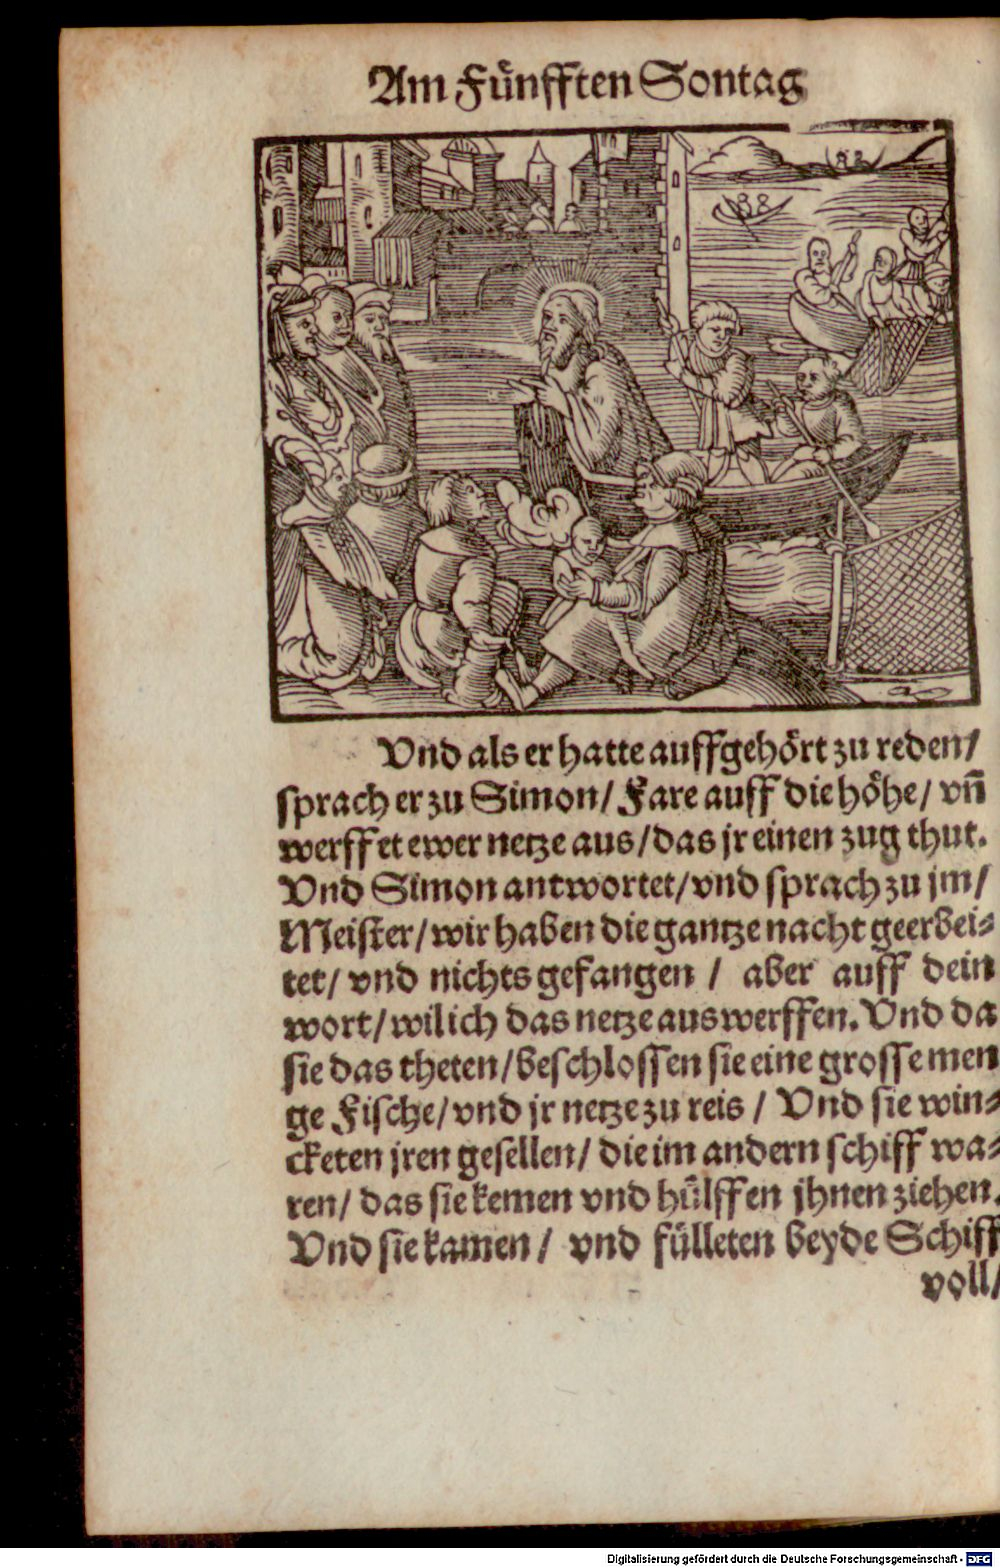 Am Fünfften Sontag
Vnd als er hatte auffgehört zu reden/
sprach er zu Simon/ Fare auff die höhe/ vñ
werffet ewer netze aus/ das jr einen zug thut.
Vnd Simon antwortet/ vnd sprach zu jm/
Meister/ wir haben die gantze nacht geerbei⸗
tet/ vnd nichts gefangen / aber auff dein
wort/ wil ich das netze auswerffen. Vnd da
sie das theten/ beschlossen sie eine grosse men
ge Fische/ vnd jr netze zu reis / Vnd sie win⸗
cketen jren gesellen/ die im andern schiff wa⸗
ren/ das sie kemen vnd hülffen jhnen ziehen.
Vnd sie kamen / vnd fülleten beyde Schiff
voll/
Digitalisierung gefördert durch die Deutsche Forschungsgemeinschaft - DFG